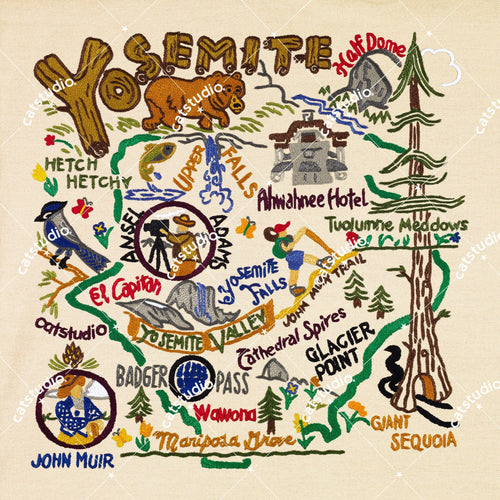 YOSEMITE
Half Dome
HETCH
HETCHY
UPPER
FALLS
Ahwahnee Hotel
Tuolumne Meadows
ANSEL
ADAMS
El Capitan
YOSEMITE
FALLS
JOHN MUIR TRAIL
YOSEMITE VALLEY
catstudio
Cathedral Spires
GLACIER
POINT
BADGER
PASS
Wawona
Mariposa Grove
GIANT
SEQUOIA
JOHN MUIR
catstudio
catstudio
catstudio
catstudio
catstudio
catstudio
catstudio
catstudio
catstudio